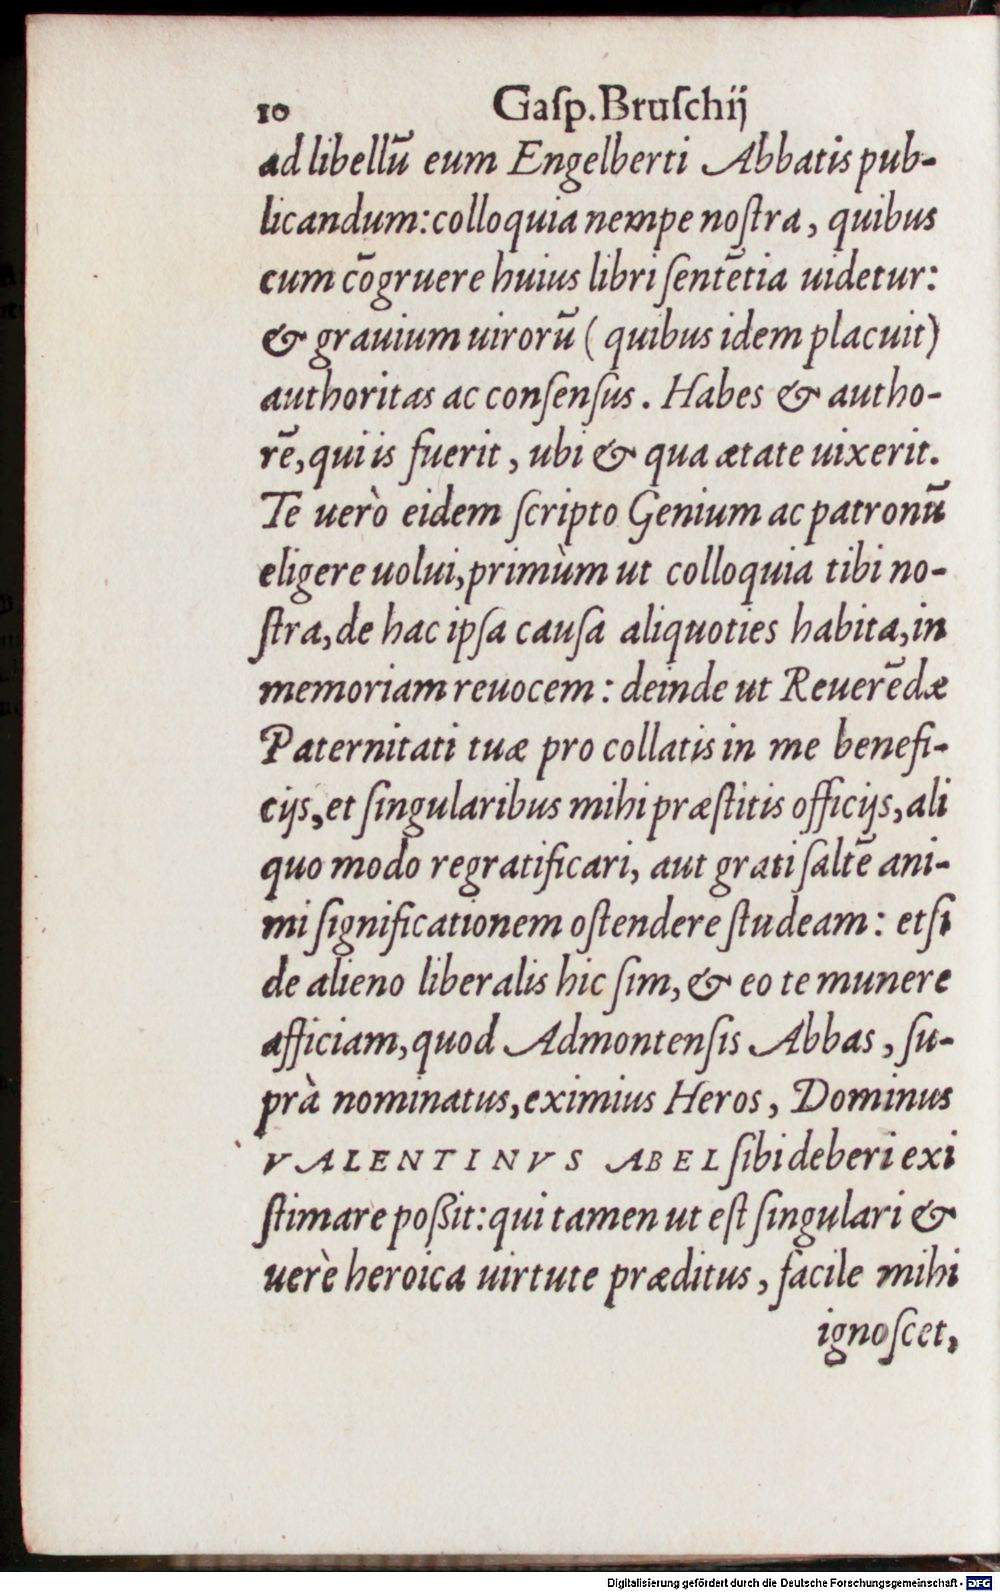 10 Gaſp. Bruſchij
ad libellū eum Engelberti Abbatis pub-
licandum: colloquia nempe noſtra, quibus
cum cōgruere huius libri ſentētia uidetur:
& grauium uirorū ( quibus idem placuit)
authoritas ac conſenſus. Habes & autho-
rē, qui is fuerit, ubi & qua ætate uixerit.
Te uerò eidem ſcripto Genium ac patronū
eligere uolui, primùm ut colloquia tibi no-
ſtra, de hac ipſa cauſa aliquoties habita, in
memoriam reuocem: deinde ut Reuerēdæ
Paternitati tuæ pro collatis in me benefi-
cijs, et ſingularibus mihi præſtitis officijs, ali
quo modo regratificari, aut grati ſaltē ani-
mi ſignificationem oſtendere ſtudeam: etſi
de alieno liberalis hic ſim, & eo te munere
afficiam, quod Admontenſis Abbas, ſu-
prà nominatus, eximius Heros, Dominus
VALENTINVS ABEL ſibi deberi exi
ſtimare poßit: qui tamen ut eſt ſingulari &
uerè heroica uirtute præditus, facile mihi
ignoſcet,
Digitalisierung gefördert durch die Deutsche Forschungsgemeinschaft - DFG